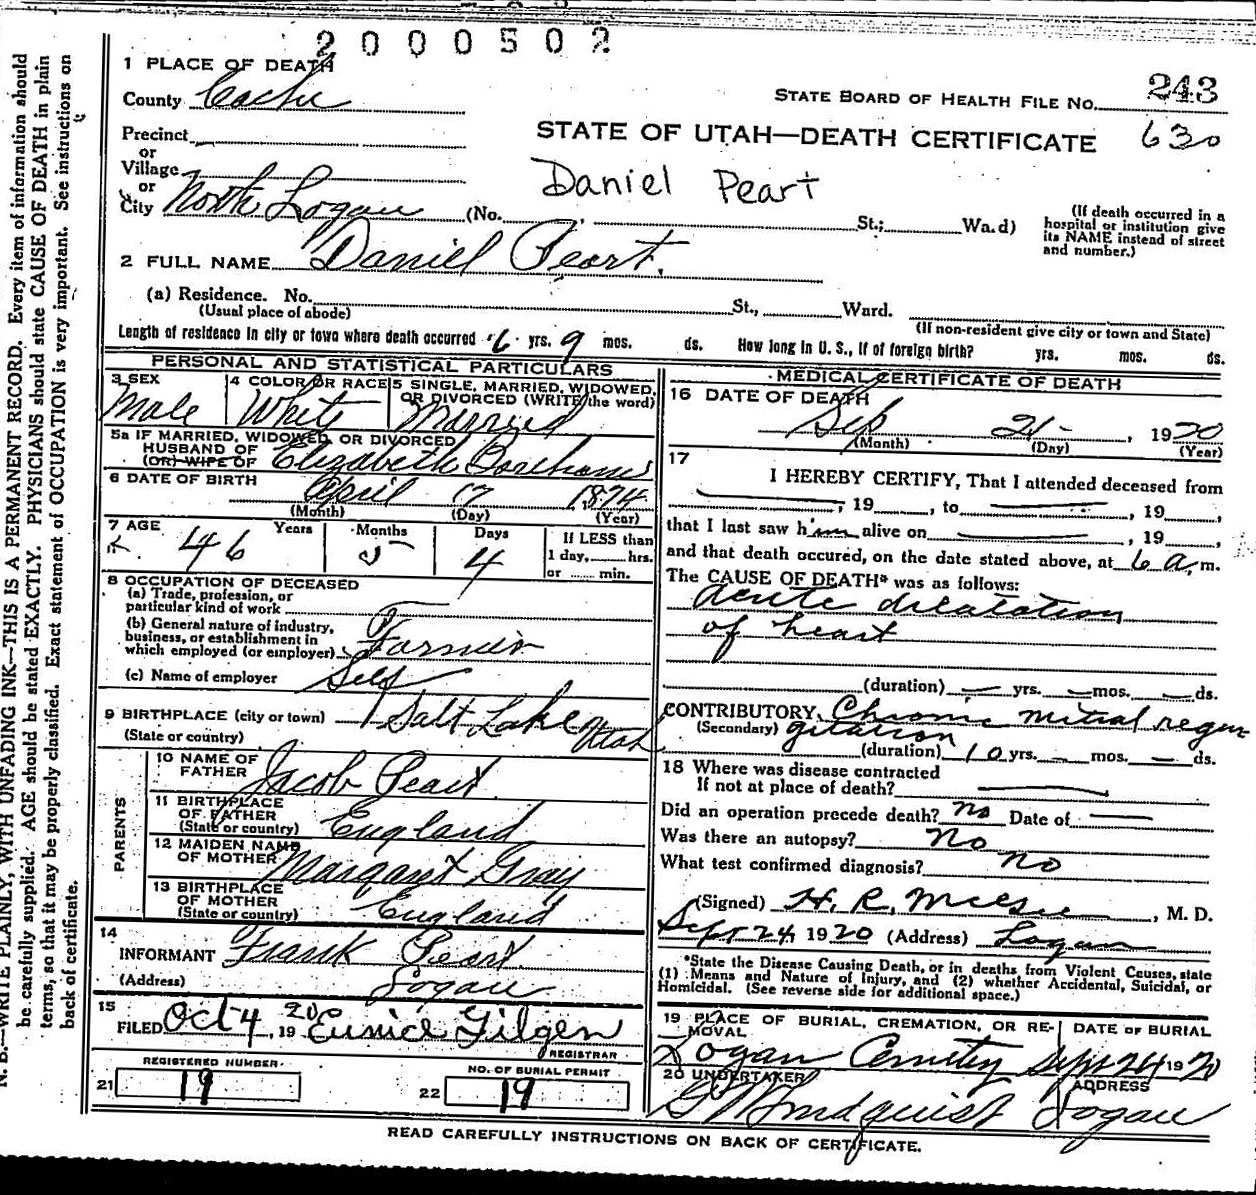 2000502
1 PLACE OF DEATH
County Cache
STATE BOARD OF HEALTH FILE NO. 243
630
STATE OF UTAH—DEATH CERTIFICATE
Precinct
or
Village
or
City North Logan (No. , St.; Wa.d)
Daniel Peart
(If death occurred in a
hospital or institution give
its NAME instead of street
and number.)
2 FULL NAME Daniel Peart.
(a) Residence. No. St., Ward.
(Usual place of abode)
(If non-resident give city or town and State)
Length of residence in city or town where death occurred 6 yrs. 9 mos. ds. How long in U. S., if of foreign birth? yrs. mos. ds.
PERSONAL AND STATISTICAL PARTICULARS
3 SEX
Male
4 COLOR OR RACE
White
5 SINGLE, MARRIED, WIDOWED,
OR DIVORCED (WRITE the word)
Married
5a IF MARRIED, WIDOWED, OR DIVORCED
HUSBAND OF
(OR) WIFE OF Elizabeth
6 DATE OF BIRTH April 17 1874
(Month) (Day) (Year)
7 AGE Years Months Days
46 5 4
If LESS than
1 day, hrs.
or min.
8 OCCUPATION OF DECEASED
(a) Trade, profession, or
particular kind of work
(b) General nature of industry,
business, or establishment in
which employed (or employer) Farmer
(c) Name of employer Self
9 BIRTHPLACE (city or town) Salt Lake
(State or country) Utah
PARENTS
10 NAME OF
FATHER Jacob Peart
11 BIRTHPLACE
OF FATHER
(State or country) England
12 MAIDEN NAME
OF MOTHER Margaret Gray
13 BIRTHPLACE
OF MOTHER
(State or country) England
14
INFORMANT Frank Peart
(Address) Logan
15
FILED Oct 4, 1920 Eunice Gilgen
REGISTRAR
REGISTERED NUMBER
21 19
NO. OF BURIAL PERMIT
22 19
MEDICAL CERTIFICATE OF DEATH
16 DATE OF DEATH
Sep 21 , 1920
(Month) (Day) (Year)
17
I HEREBY CERTIFY, That I attended deceased from
, 19 , to , 19 ,
that I last saw him alive on , 19 ,
and that death occured, on the date stated above, at 6 a. m.
The CAUSE OF DEATH* was as follows:
acute dilatation
of heart
(duration) yrs. mos. ds.
CONTRIBUTORY Chronic mitral regur
(Secondary) gitation
(duration) 10 yrs. mos. ds.
18 Where was disease contracted
If not at place of death?
Did an operation precede death? no Date of
Was there an autopsy? No
What test confirmed diagnosis? no
(Signed) H. R. , M. D.
Sept 24, 1920 (Address) Logan
*State the Disease Causing Death, or in deaths from Violent Causes, state
(1) Means and Nature of Injury, and (2) whether Accidental, Suicidal, or
Homicidal. (See reverse side for additional space.)
19 PLACE OF BURIAL, CREMATION, OR RE-
MOVAL
DATE OF BURIAL
Logan Cemetery Sept 24 1920
20 UNDERTAKER
ADDRESS
Lindquist Logan
READ CAREFULLY INSTRUCTIONS ON BACK OF CERTIFICATE.
N. B.—WRITE PLAINLY, WITH UNFADING INK—THIS IS A PERMANENT RECORD. Every item of information should
be carefully supplied. AGE should be stated EXACTLY. PHYSICIANS should state CAUSE OF DEATH in plain
terms, so that it may be properly classified. Exact statement of OCCUPATION is very important. See instructions on
back of certificate.